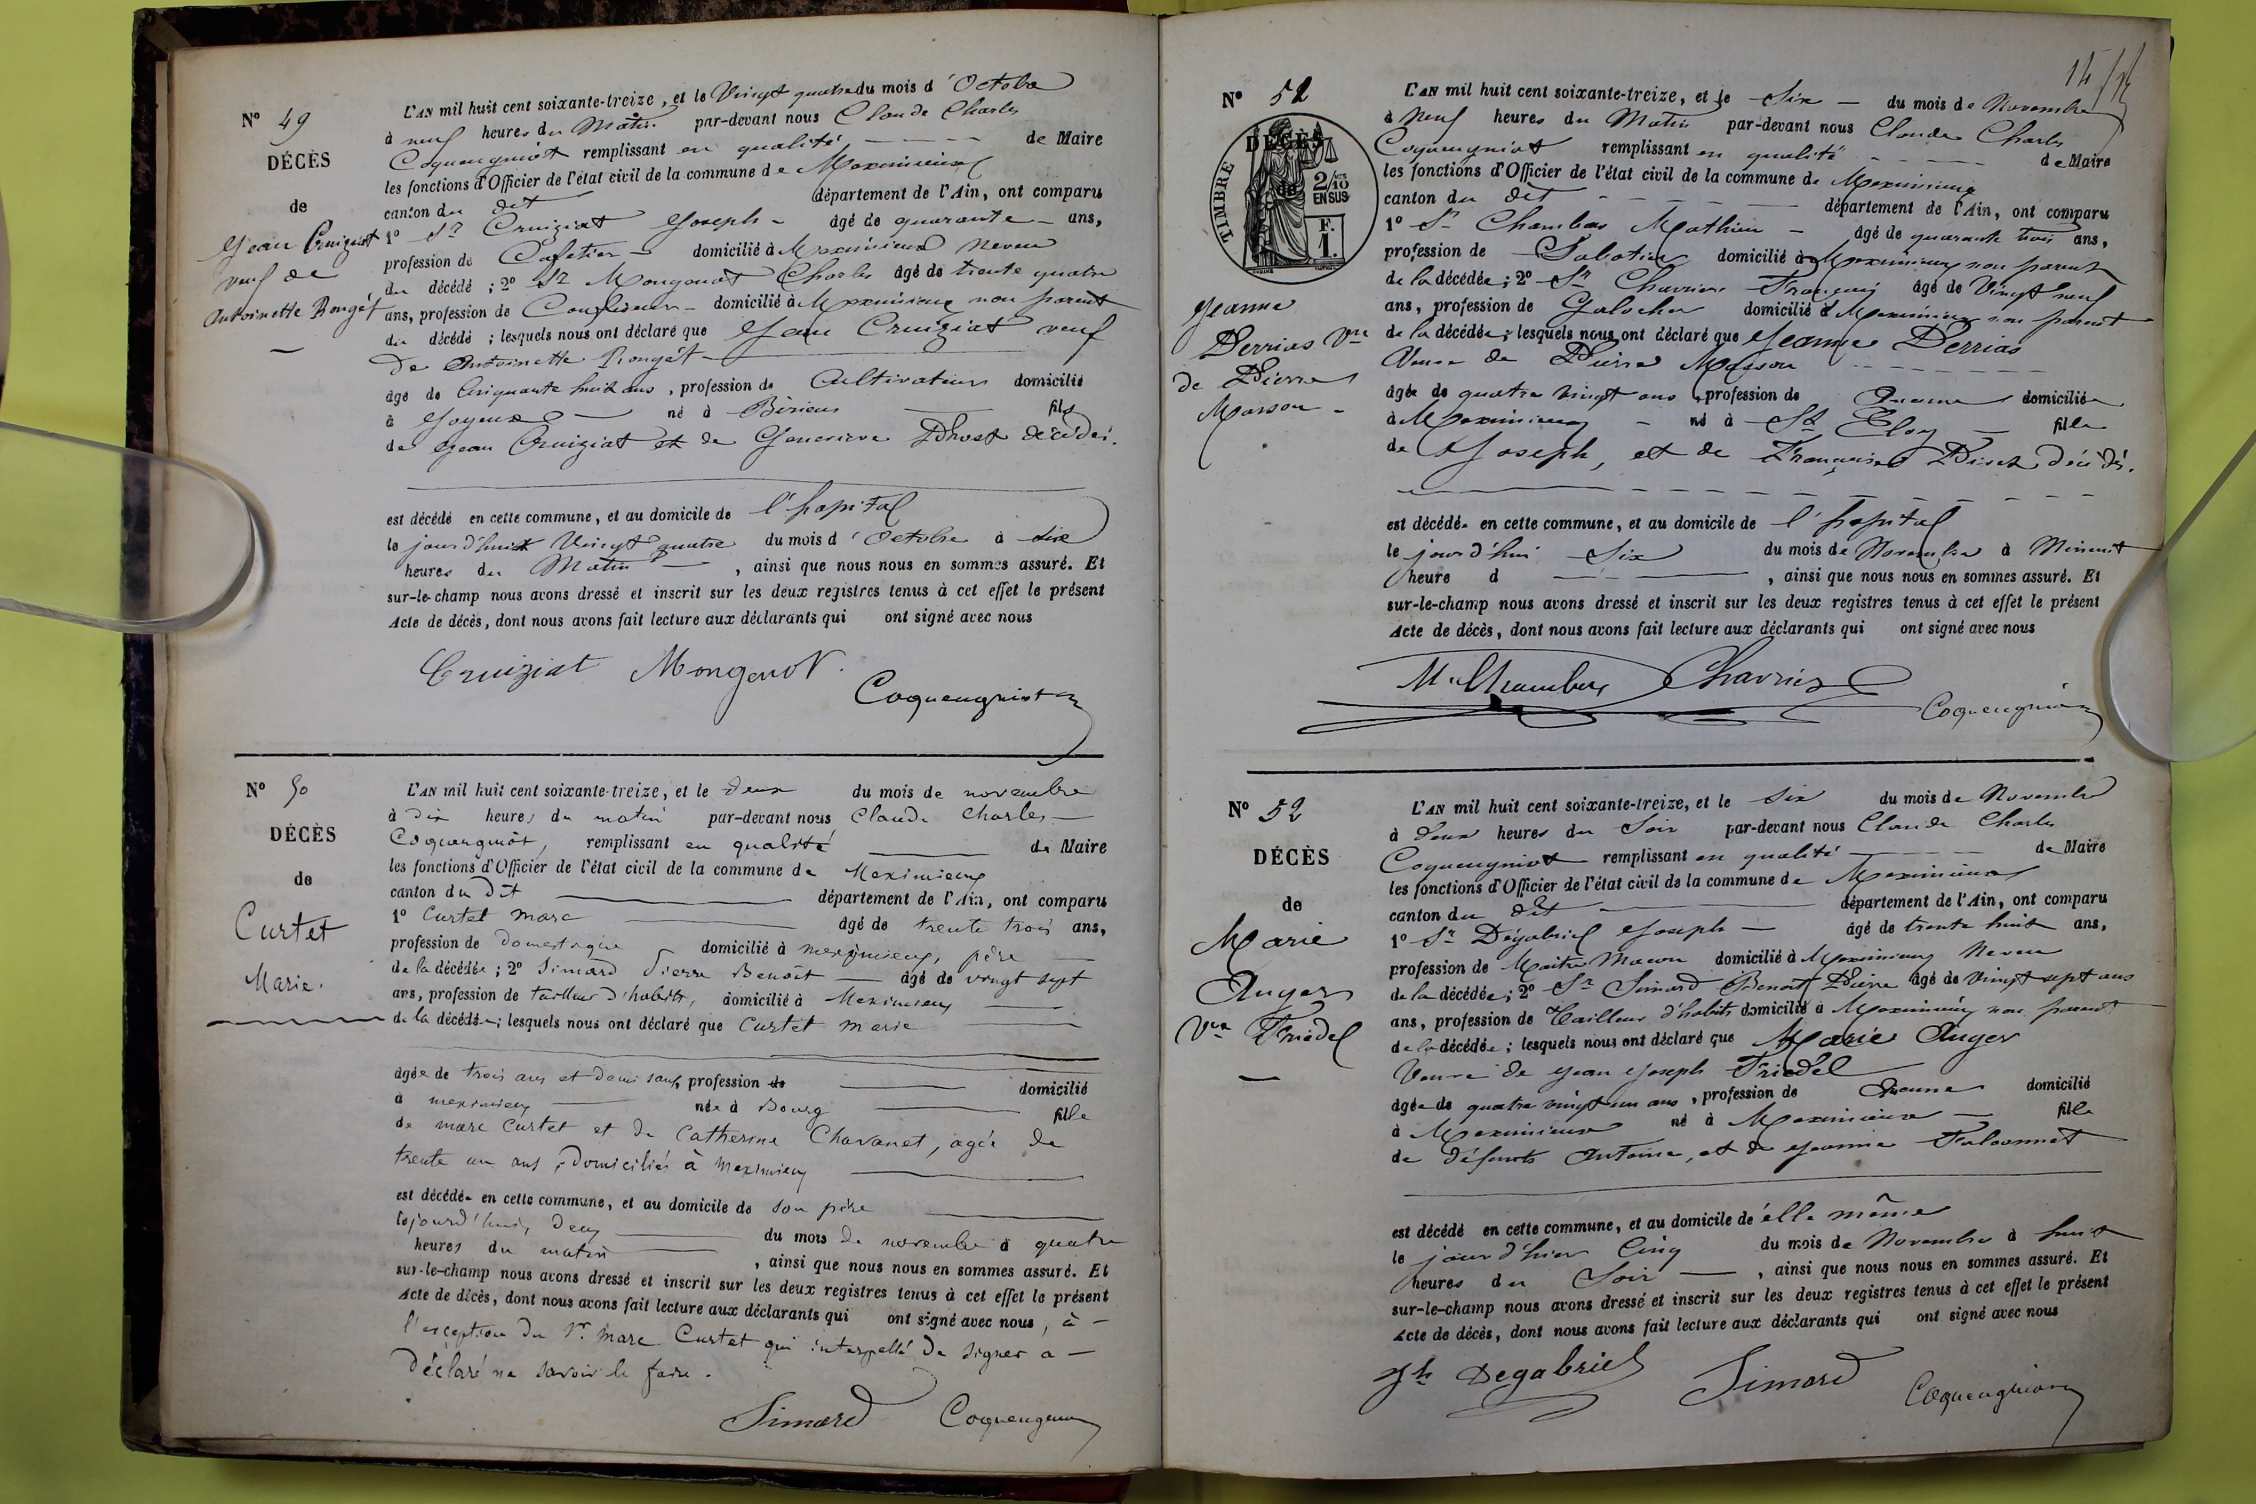 N° 49
DÉCÈS
de
Jean Cruiziat
veuf de
Antoinette Rongét
L'AN mil huit cent soixante-treize, et le Vingt quatre du mois d'Octobre
à neuf heures du Matin par-devant nous Claude Charles
Coqueugniot remplissant en qualité de Maire
les fonctions d'Officier de l'état civil de la commune de Meximieux
canton du dit département de l'Ain, ont comparu
1° Sr Cruiziat Joseph âgé de quarante ans,
profession de Cafetier domicilié à Meximieux neveu
du décédé ; 2° Sr Mongenot Charles âgé de trente quatre
ans, profession de Confiseur domicilié à Meximieux non parent
du décédé ; lesquels nous ont déclaré que Jean Cruiziat veuf
de Antoinette Rongét
âgé de Cinquante huit ans, profession de Cultivateur domicilié
à Joyeux né à Birieux fils
de Jean Cruiziat et de Genevieve Dhost décédés.
est décédé en cette commune, et au domicile de l'hopital
le jourd'hui Vingt quatre du mois d'Octobre à six
heures du Matin, ainsi que nous nous en sommes assuré. Et
sur-le-champ nous avons dressé et inscrit sur les deux registres tenus à cet effet le présent
Acte de décès, dont nous avons fait lecture aux déclarants qui ont signé avec nous
Cruiziat Mongenot
Coqueugniot
N° 50
DÉCÈS
de
Curtet
Marie.
L'AN mil huit cent soixante-treize, et le deux du mois de novembre
à dix heures du matin par-devant nous Claude Charles
Coqueugniot, remplissant en qualité de Maire
les fonctions d'Officier de l'état civil de la commune de Meximieux
canton du Dit département de l'Ain, ont comparu
1° Curtet Marc âgé de trente trois ans,
profession de domestique domicilié à meximieux, père
de la décédée ; 2° Simard Pierre Benoit âgé de vingt sept
ans, profession de tailleur d'habits, domicilié à Meximieux
de la décédée ; lesquels nous ont déclaré que Curtet marie
âgée de trois ans et demi sans profession de domicilié
à meximieux née à Bourg fille
de marc Curtet et de Catherine Chavanet, agée de
trente un ans, domiciliés à meximieux
est décédée en cette commune, et au domicile de son père
le jourd'hui, deux du mois de novembre à quatre
heures du matin, ainsi que nous nous en sommes assuré. Et
sur-le-champ nous avons dressé et inscrit sur les deux registres tenus à cet effet le présent
Acte de décès, dont nous avons fait lecture aux déclarants qui ont signé avec nous, à
l'exception du Sr Marc Curtet qui interpellé de signer a
déclaré ne savoir le faire.
Simard Coqueugniot
14
N° 52
DÉCÈS
de
TIMBRE
2/10
EN SUS
F.
1.
Jeanne
Derrias Vve
de Pierre
Masson
L'AN mil huit cent soixante-treize, et le Six du mois de Novembre
à Neuf heures du Matin par-devant nous Claude Charles
Coqueugniot remplissant en qualité de Maire
les fonctions d'Officier de l'état civil de la commune de Meximieux
canton du dit département de l'Ain, ont comparu
1° Sr Chambas Mathieu âgé de quarante trois ans,
profession de Sabotier domicilié à Meximieux non parent
de la décédée ; 2° Sr Charrier François âgé de Vingt neuf
ans, profession de Galocher domicilié à Meximieux non parent
de la décédée ; lesquels nous ont déclaré que Jeanne Derrias
Veuve de Pierre Masson
âgée de quatre vingt ans, profession de domiciliée
à Meximieux né à St Eloy fille
de Joseph, et de Françoise décédés.
est décédée en cette commune, et au domicile de l'hopital
le jourd'hui Six du mois de Novembre à Minuit
heure d, ainsi que nous nous en sommes assuré. Et
sur-le-champ nous avons dressé et inscrit sur les deux registres tenus à cet effet le présent
Acte de décès, dont nous avons fait lecture aux déclarants qui ont signé avec nous
M. Chambas Charrier
Coqueugniot
N° 52
DÉCÈS
de
Marie
Auger
Vve Friedel
L'AN mil huit cent soixante-treize, et le six du mois de Novembre
à deux heures du Soir par-devant nous Claude Charles
Coqueugniot remplissant en qualité de Maire
les fonctions d'Officier de l'état civil de la commune de Meximieux
canton du dit département de l'Ain, ont comparu
1° Sr Dégabriel Joseph âgé de trente huit ans,
profession de Maitre Macon domicilié à Meximieux Neveu
de la décédée ; 2° Sr Simard Benoit Pierre âgé de Vingt sept ans
ans, profession de Tailleur d'habits domicilié à Meximieux non parent
de la décédée ; lesquels nous ont déclaré que Marie Auger
Veuve de Jean Joseph Friedel
âgée de quatre vingt un ans, profession de domicilié
à Meximieux né à Meximieux fille
de défunts Antoine, et de Jeanne Falconnet
est décédé en cette commune, et au domicile d'elle même
le jour d'hier Cinq du mois de Novembre à huit
heures du Soir, ainsi que nous nous en sommes assuré. Et
sur-le-champ nous avons dressé et inscrit sur les deux registres tenus à cet effet le présent
Acte de décès, dont nous avons fait lecture aux déclarants qui ont signé avec nous
Jh Degabriel Simard Coqueugniot